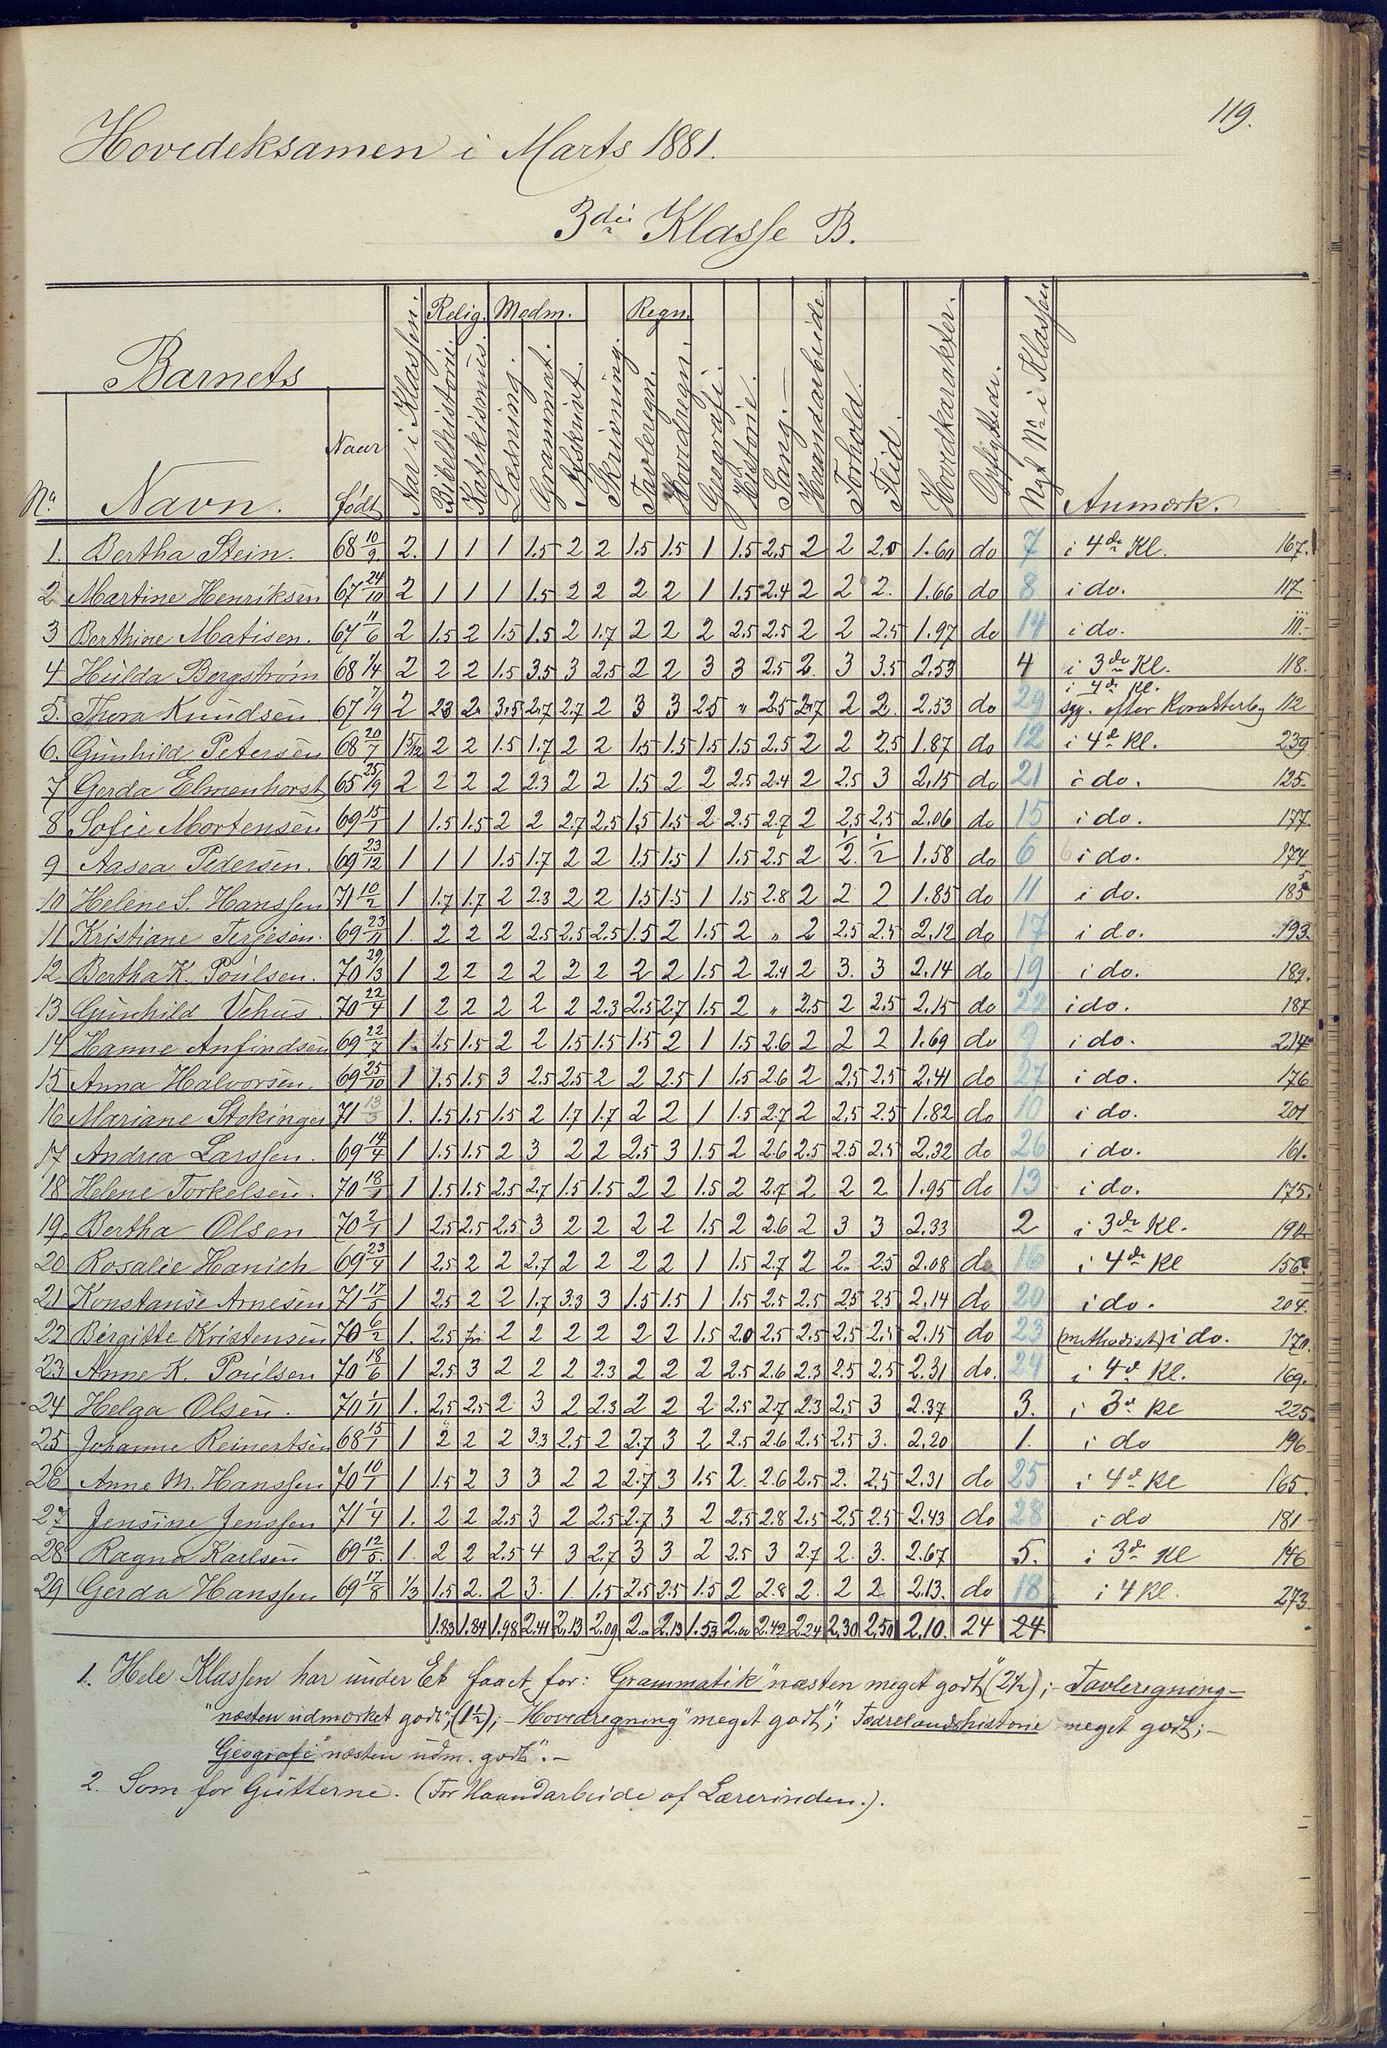 119.
Hovedeksamen i Marts 1881.
3die Klasse B.
Barnets
No. Navn. Naar født Aar i Klassen. Relig. Bibelhistorie. Katekismus. Modm. Læsning. Grammat. Nyskrivt. Skrivning. Regn. Tavleregn. Hovedregn. Geografi. Historie. Sang. Haandarbeide. Forhold. Flid. Hovedkarakter. Opflyttede. Nyt No. i Klassen Anmærk.
1. Bertha Stein. 68 10/9 2. 1 1 1 1.5 2 2 1.5 1.5 1 1.5 2.5 2 2 2.0 1.60 do 7 i 4de Kl. 167.
2 Martine Henriksen 67 24/10 2 1 1 1 1.5 2 2 2 2 1 1.5 2.4 2 2 2. 1.66 do 8 i do. 117.
3 Berthine Matisen. 67 11/6 2 1.5 2 1.5 1.5 2 1.7 2 2 2 2.5 2.5 2 2 2.5 1.97 do 14 i do. 111.
4 Hulda Bergstrøm 68 1/4 2 2 2 1.5 3.5 3 2.5 2 2 3 3 2.5 2. 3 3.5 2.53 4 i 3de Kl. 118.
5. Thora Knudsen 67 7/9 2 2.3 2. 3.5 2.7 2.7 2 3 3 2.5 " 2.5 2.7 2 2. 2.53 do 29 i 4de Kl. efter 112
6. Gunhild Petersen 68 20/7 2 2 1.5 1.7 2 2 1.5 1.5 1.5 1.5 2.5 2 2 2.5 1.87 do 12 i 4de Kl. 239
7 Gerda Elmenhorst 65 25/9 2 2 2 2 2.3 2 2 1.5 2 2 2.5 2.4 2 2.5 3 2.15 do 21 i do. 125.
8 Sofie Mortensen 69 15/1 1 1.5 1.5 2 2 2.7 2.5 1.5 1.5 2 2.5 2.7 2 2.5 2.5 2.06 do 15 i do. 177.
9 Aasea Pedersen. 69 23/12 1 1 1 1.5 1.7 2 2 1.5 1.5 1 1.5 2.5 2 1/2. 1/2 1.58 do 6 i do. 174
10 Helene S. Hanssen 71 10/2 1 1.7 1.7 2 2.3 2 2 1.5 1.5 1 1.5 2.8 2 2 2 1.85 do 11 i do. 185
11 Kristiane Terjesen. 69 23/11 1. 2 2 2 2.5 2.5 2.5 1.5 2 1.5 2 " 2 2.5 2.5 2.12 do 17 i do. 193.
12. Bertha K. Poulsen. 70 1 2 2 2 2 2 2 2 2 1.5 2 2.4 2 3. 3 2.14 do 19 i do. 189.
13 Gunhild Vehus. 70 22/4 1 2 2 2 2 2 2.3 2.5 2.7 1.5 2 " 2.5 2 2.5 2.15 do 22 i do. 187
14 Hanne Anfindsen 69 22/7 1. 1.5 1.5 2 2 1.5 1.5 1.5 2 1 1.5 2.6 2 2 2 1.69 do 9 i do. 214
15 Anna Halvorsen. 69 25/10 1 1.5 1.5 3 2.5 2.5 2 2 2.5 1 1.5 2.6 2 2.5 2.5 2.41 do 27 i do. 176
16 Mariane Stokinger 71 13/3 1. 1.5 1.5 1.5 2 1.7 1.7 2 2 1 1.5 2.7 2 2.5 2.5 1.82 do 10 i do. 201
17 Andrea Larssen. 69 14/4 1 1.5 1.5 2 3 2 2 2.5 3 1.5 2 2.6 2.5 2.5 2.5 2.32 do 26 i do. 161.
18 Helene Torkelsen. 70 18/1 1 1.5 1.5 2.5 2.7 1.5 1.5 2 2 1.5 2 2.7 2 2 2 1.95 do 13 i do. 175.
19. Bertha Olsen 70 2/4 1 2.5 2.5 2.5 3 2 2 2 2 1.5 2 2.6 2 3 3 2.33 2 i 3de Kl. 190.
20 Rosalie Hanich 69 23/4 1 2.5 2 2 2.7 2 2 2 2 1 1.5 2.7 2 2. 2.5 2.08 do 16 i 4de Kl 156
21 Konstanse Arnesen 71 17/5 1 2.5 2 2 1.7 3.3 3 1.5 1.5 1 1.5 2.5 2.5 2.5 2.5 2.14 do 20 i do. 204.
22 Bergitte Kristensen 70 6/2 1. 2.5 fri 2 2 2 2 2 2 1.5 2.0 2.5 2.5 2.5 2.5 2.15 do 23 (methodist) i do. 170.
23 Anne K. Poulsen 70 18/6 1 2.5 3 2 2 2 2.3 2 2 2 2.5 2.6 2.3 2.5 2.5 2.31 do. 24 i 4de Kl. 169.
24 Helga Olsen. 70 1/11 1. 2.5 2.5 2 3 2 2.3 2 2 2 2.5 2.7 2.3 2.5 3 2.37 3. i 3de Kl 225
25 Johanne Reinertsen 68 15/1 1 2 2 2 3.3 2.5 2 2.7 3 2 2.5 2.6 2.5 2.5 3. 2.20 1. i do 196
26 Anne M. Hanssen 70 10/1 1 1.5 2 3 3 2 2 2.7 3 1.5 2. 2.6 2.5 2. 2.5 2.31 do 25 i 4de Kl 165.
27 Jensine Jenssen 71 1/4 1. 2 2 2.5 3 2 2.5 2.7 3 2 2.5 2.8 2.5 2.5 2.5 2.43 do 28 i do 181
28 Ragna Karlsen 69 12/5 1. 2 2 2.5 4 3 2.7 3 3 2 2.5 3 2.7 2. 3. 2.67 5. i 3de Kl 146
29 Gerda Hanssen 69 17/8 1/3 1.5 2. 2 3. 1 1.5 2.5 2.5 1.5 2 2.8 2. 2 2 2.13. do 18 i 4 Kl. 273.
1.83 1.84 1.98 2.41 2.13 2.09 2.13 1.53 2.00 2.42 2.24 2.30 2.50 2.10. 24 24
1. Hele Klassen har under Et faaet for: Grammatik "næsten meget godt" (2½); - Tavleregning -
"næsten udmærket godt"; (1½); - Hovedregning "meget godt"; Fædrelandshistorie meget godt; -
Geografi "næsten udm. godt". -
2. Som for Gutterne. (For Haandarbeide af Lærerinden.).